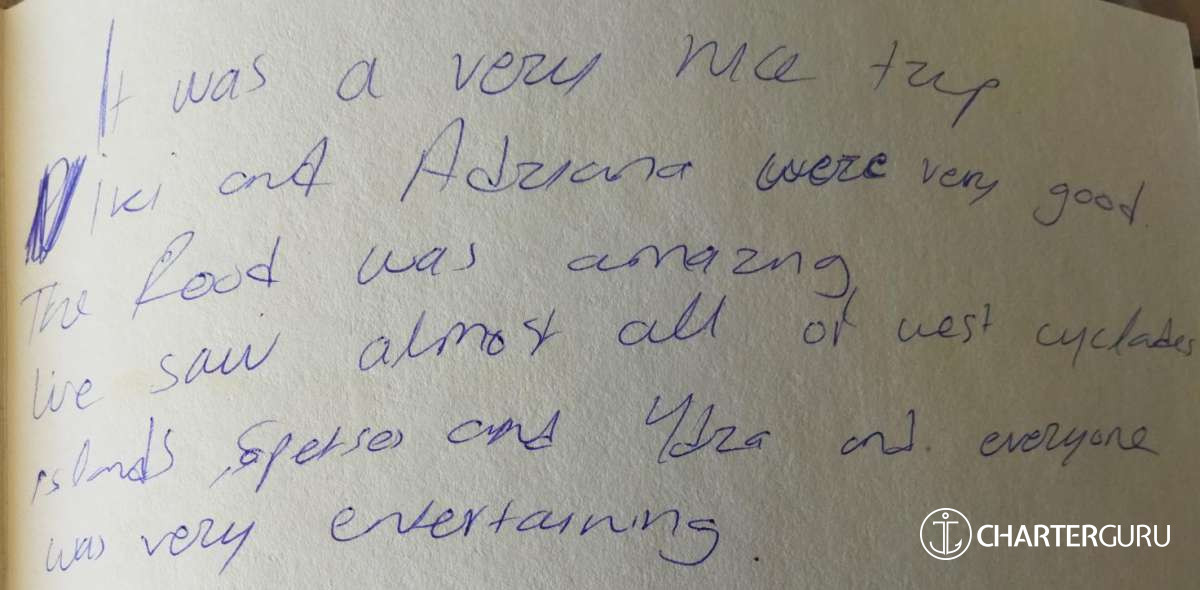 It was a very nice trip
Niki and Adriana were very good.
The food was amazing
We saw almost all of west cyclades
islands, Spetses and Ydra and everyone
was very entertaining.
CHARTERGURU